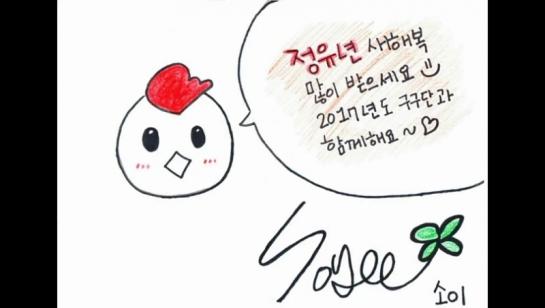 정유년 새해복
많이 받으세요
2017년도 구구단과
함께해요~♡
Soyee
소이